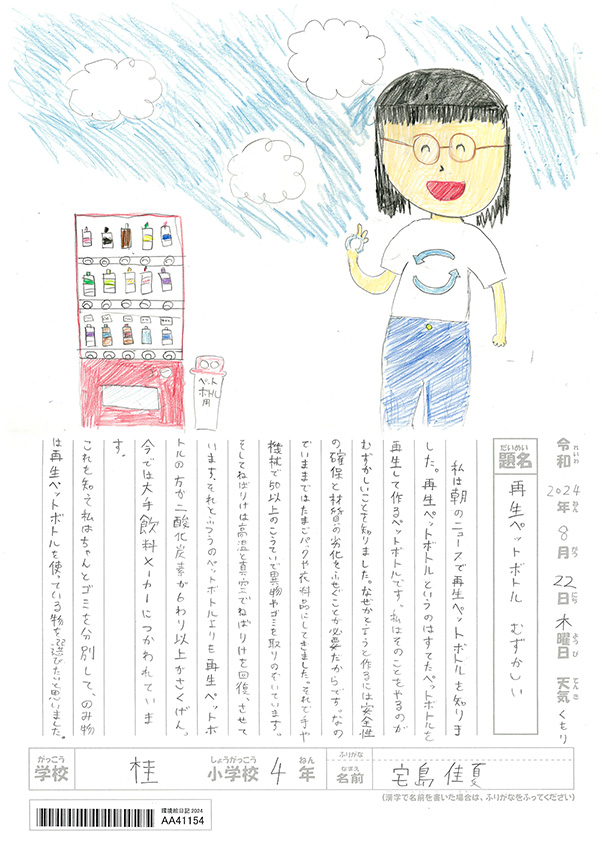 ペット
ボトル
用
令和 2024年 8月 22日 木曜日 天気 くもり
れいわ ねん がつ にち ようび てんき
だいめい
題名
再生ペットボトル むずかしい
私は朝のニュースで再生ペットボトルを知りま
した。再生ペットボトルというのはすてたペットボトルを
再生して作るペットボトルです。私はそのことをやるのが
むずかしいことを知りました。なぜかとゆうと作るには安全性
の確保と材質の劣化をふせぐことが必要だからです。なの
でいままではたまごパックや衣料品にしてきました。それで手や
機械で50以上のこうていで異物やゴミを取りのぞいています。
そしてねばりけは高温と真空でねばりけを回復させて
います。それとふつうのペットボトルよりも再生ペットボ
トルの方が二酸化炭素が6わり以上かさくげん。
今では大手飲料メーカーにつかわれていま
す。
これを知って私はちゃんとゴミを分別して、のみ物
は再生ペットボトルを使っている物を選びたいと思いました。
がっこう
学校
桂
しょうがっこう
小学校
4
ねん
年
ふりがな
なまえ
名前
宅島 佳夏
(漢字で名前を書いた場合は、ふりがなをふってください)
環境絵日記2024
AA41154